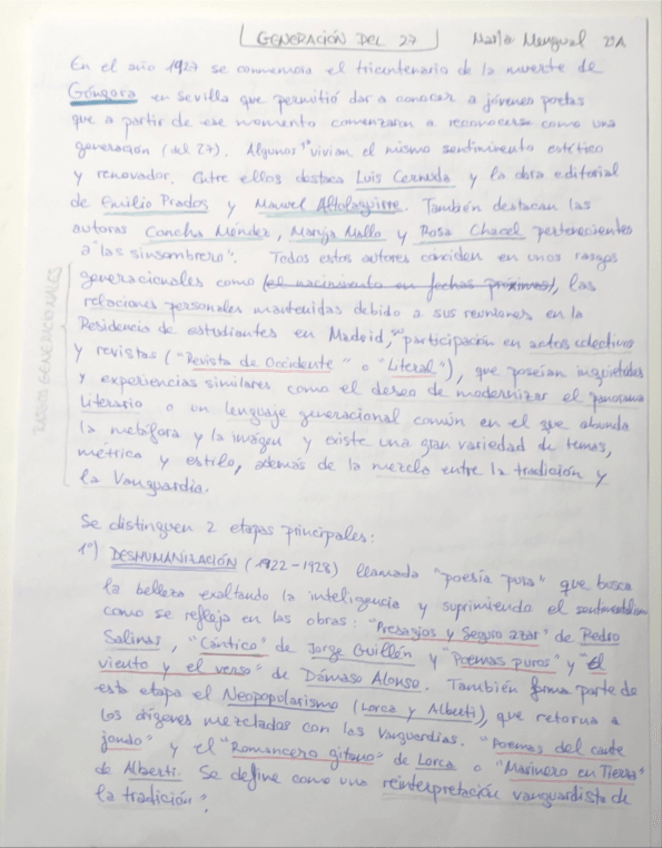 GENERACIÓN DEL 27
En el año 1927 se conmemora el tricentenario de la muerte de
Góngora en Sevilla que permitió dar a conocer a jóvenes poetas
que a partir de ese momento comenzaron a reconocerse como una
generación (del 27). Algunos vivían el mismo sentimiento estético
y renovador. Entre ellos destaca Luis Cernuda y la obra editorial
de Emilio Prados y Manuel Altolaguirre. También destacan las
autoras Concha Méndez, Maruja Mallo y Rosa Chacel pertenecientes
a "las sinsombrero". Todos estos autores coinciden en unos rasgos
generacionales como (el nacimiento en fechas próximas), las
relaciones personales mantenidas debido a sus reuniones en la
Residencia de estudiantes en Madrid, participación en actos colectivos
y revistas ("Revista de Occidente" o "Literal"), que poseían inquietudes
y experiencias similares como el deseo de modernizar el panorama
literario o un lenguaje generacional común en el que abunda
la metáfora y la imagen y existe una gran variedad de temas,
métrica y estilo, además de la mezcla entre la tradición y
la Vanguardia.
RASGOS GENERACIONALES
Se distinguen 2 etapas principales:
1º) DESHUMANIZACIÓN (1922-1928) llamada "poesía pura" que busca
la belleza exaltando la inteligencia y suprimiendo el sentimentalismo
como se refleja en las obras: "Presagios y Seguro azar" de Pedro
Salinas, "Cántico" de Jorge Guillén y "Poemas puros" y "El
viento y el verso" de Dámaso Alonso. También forma parte de
esta etapa el Neopopularismo (Lorca y Alberti), que retorna a
los orígenes mezclados con las Vanguardias. "Poemas del cante
jondo" y el "Romancero gitano" de Lorca o "Marinero en Tierra"
de Alberti. Se define como una reinterpretación vanguardista de
la tradición".